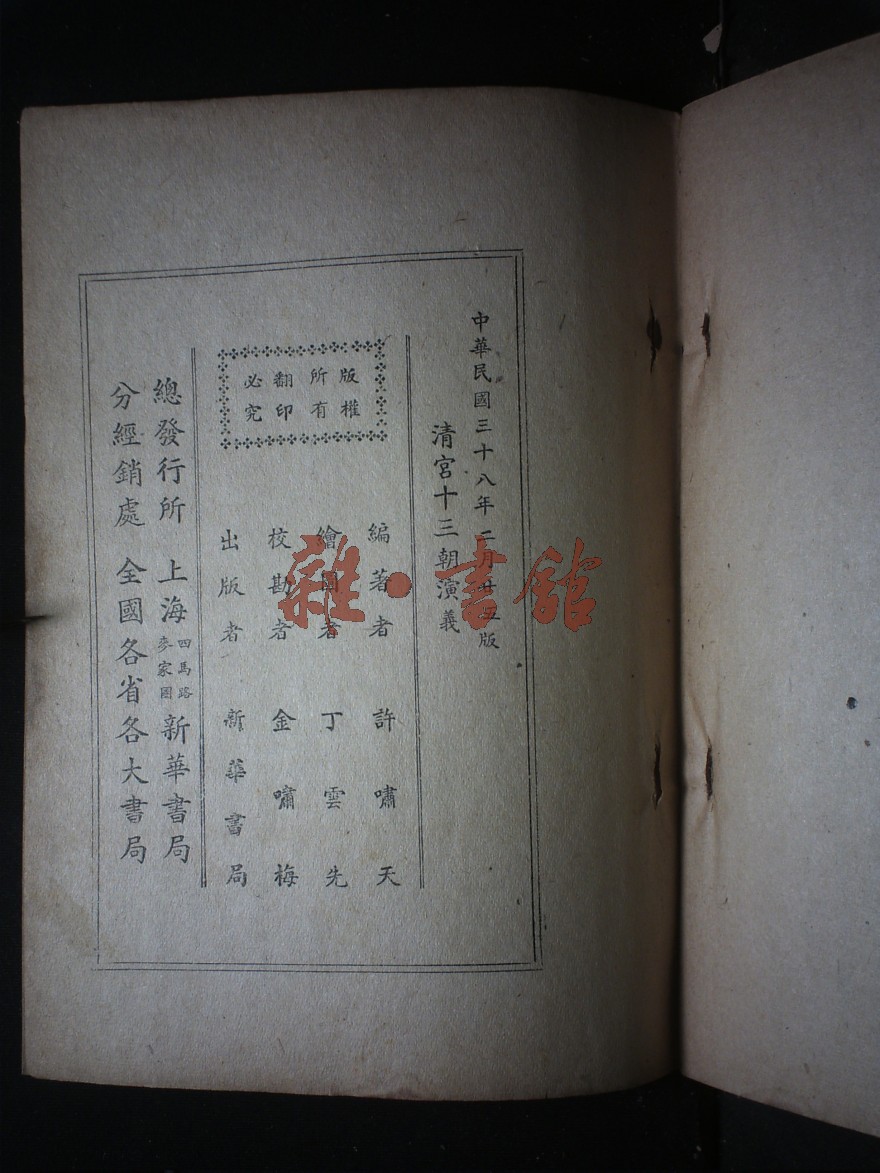 中華民國三十八年二月廿五版
清宮十三朝演義
版權所有
翻印必究
編著者 許嘯天
繪圖者 丁雲先
校勘者 金嘯梅
出版者 新華書局
總發行所 上海 四馬路 麥家圈 新華書局
分經銷處 全國各省各大書局
雜·書館